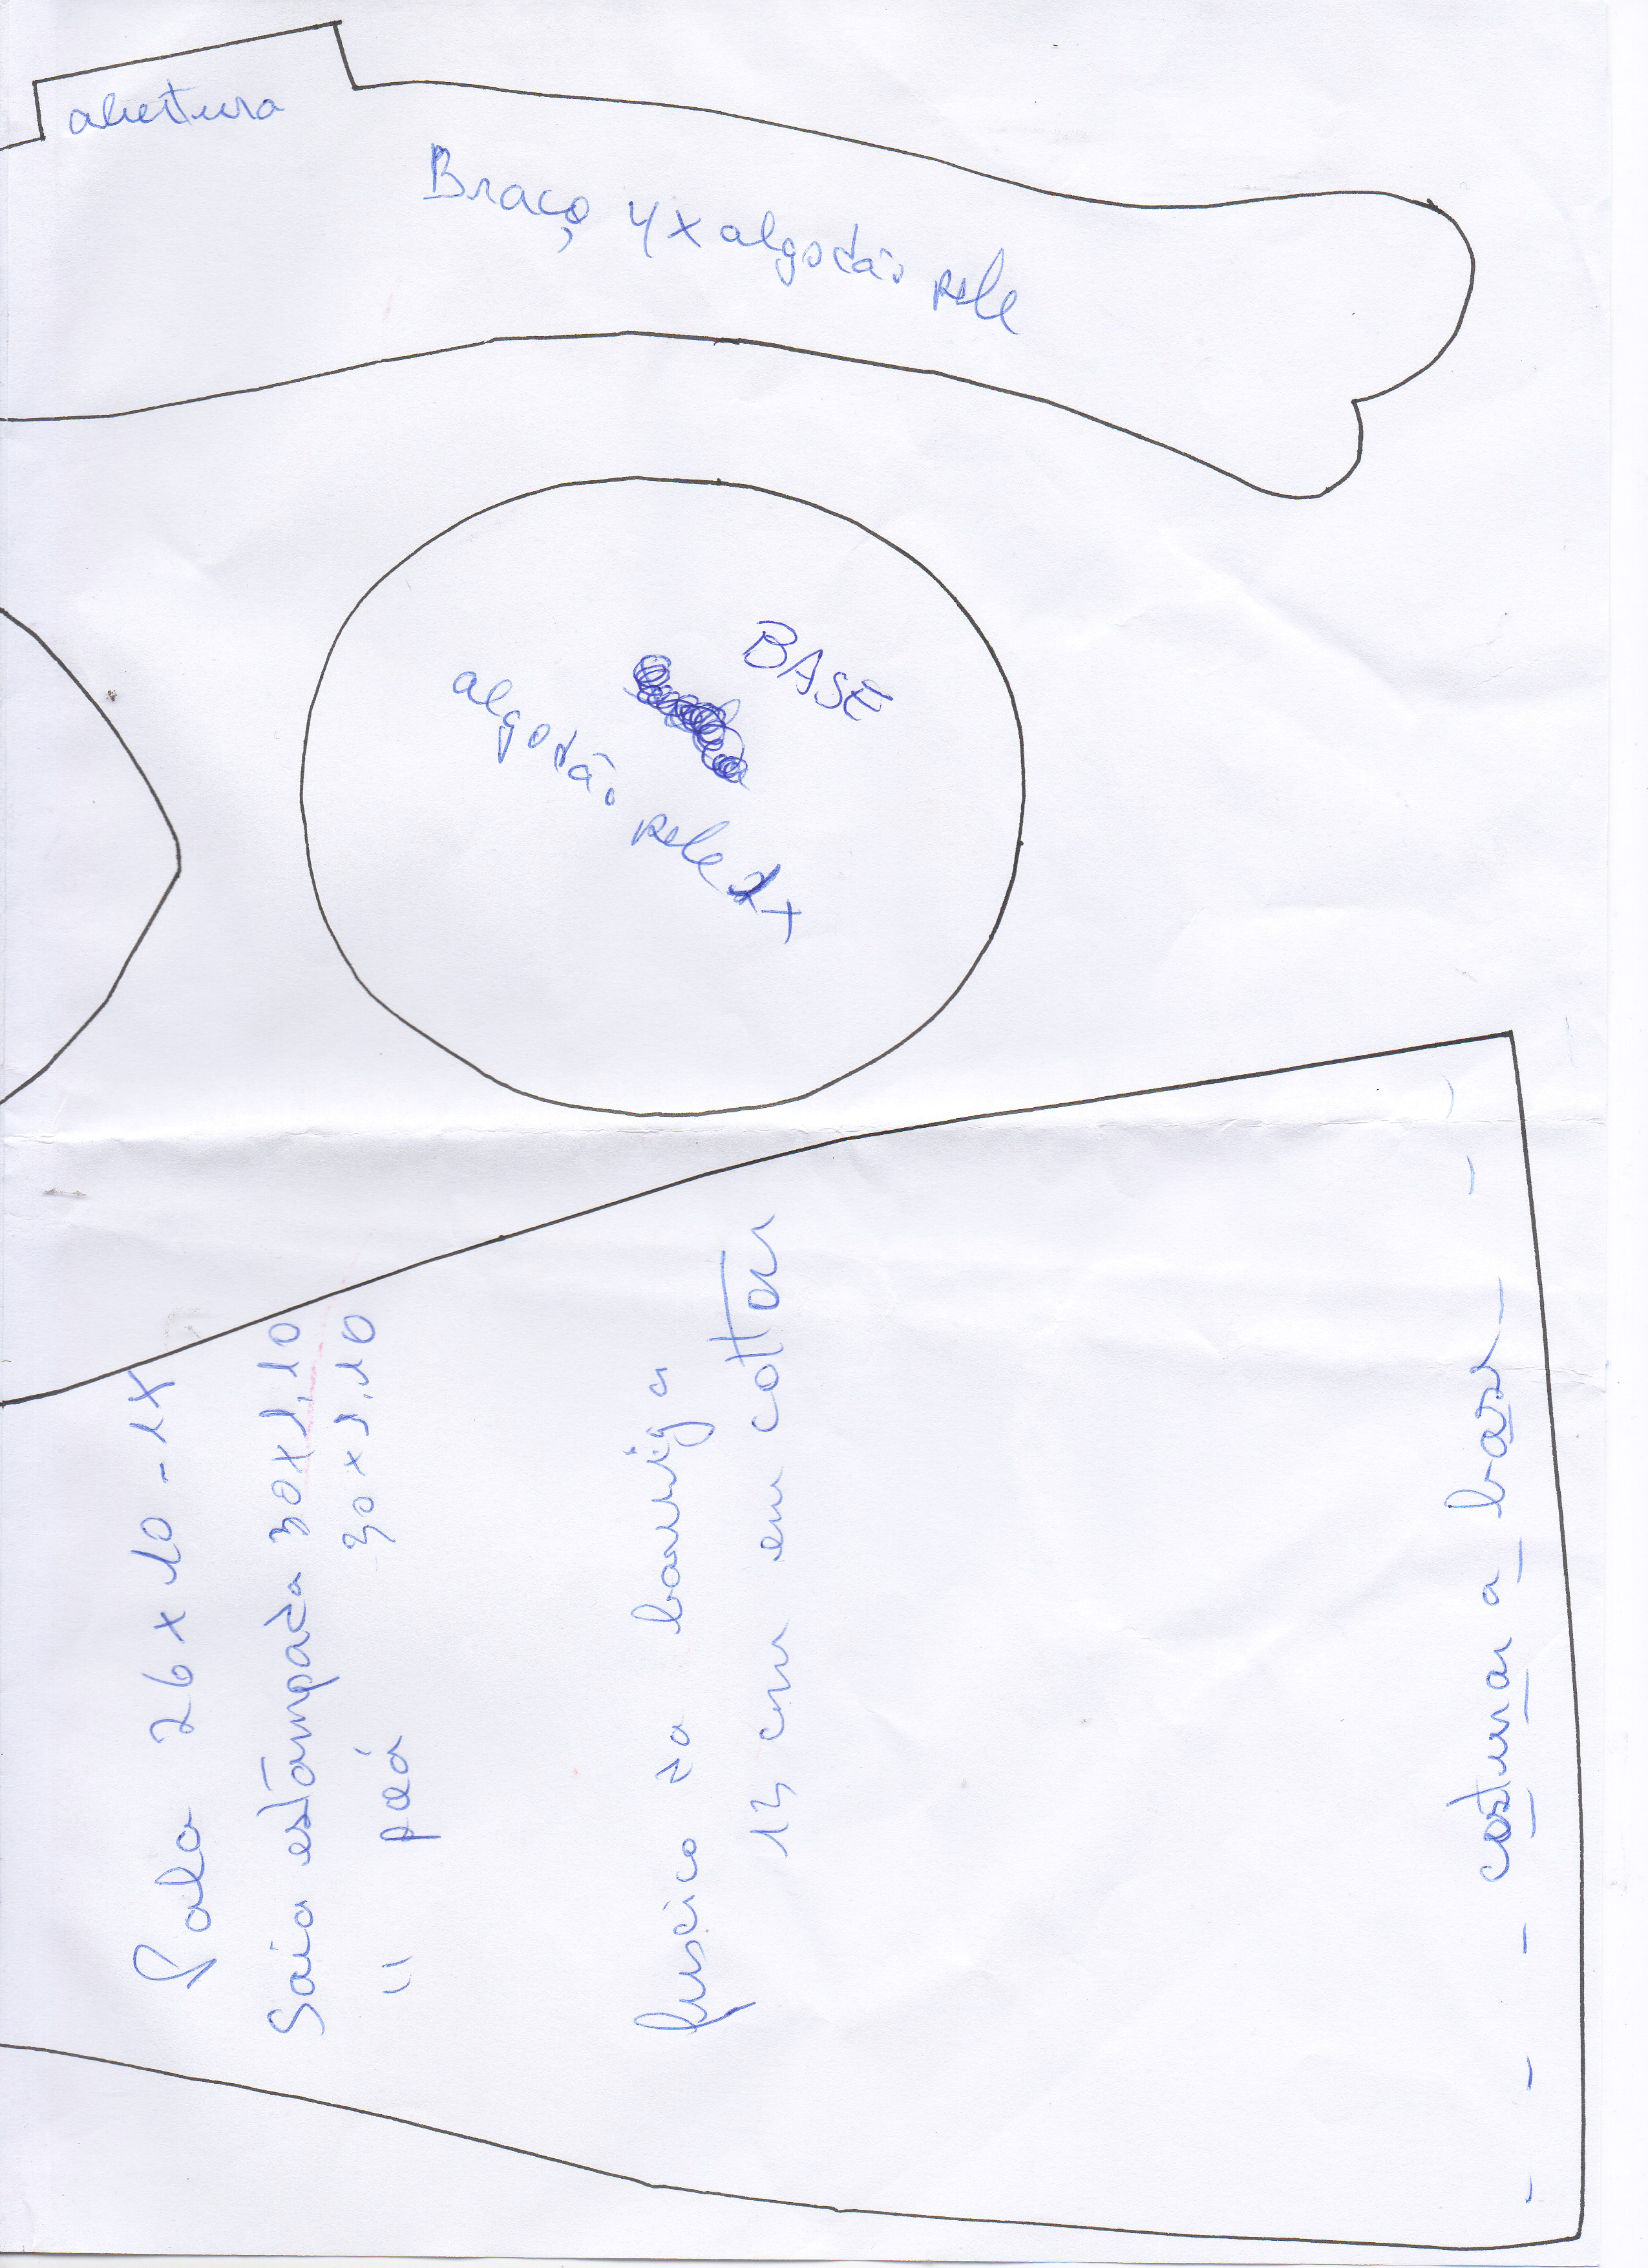 abertura
Braço 4x algodão pele
BASE
algodão pele 2x
Pala 26 x 10 - 1x
Saia estampada 30x1,10
" poá 30x1,10
fuxico da barriga
13 cm em cotton
costurar a base